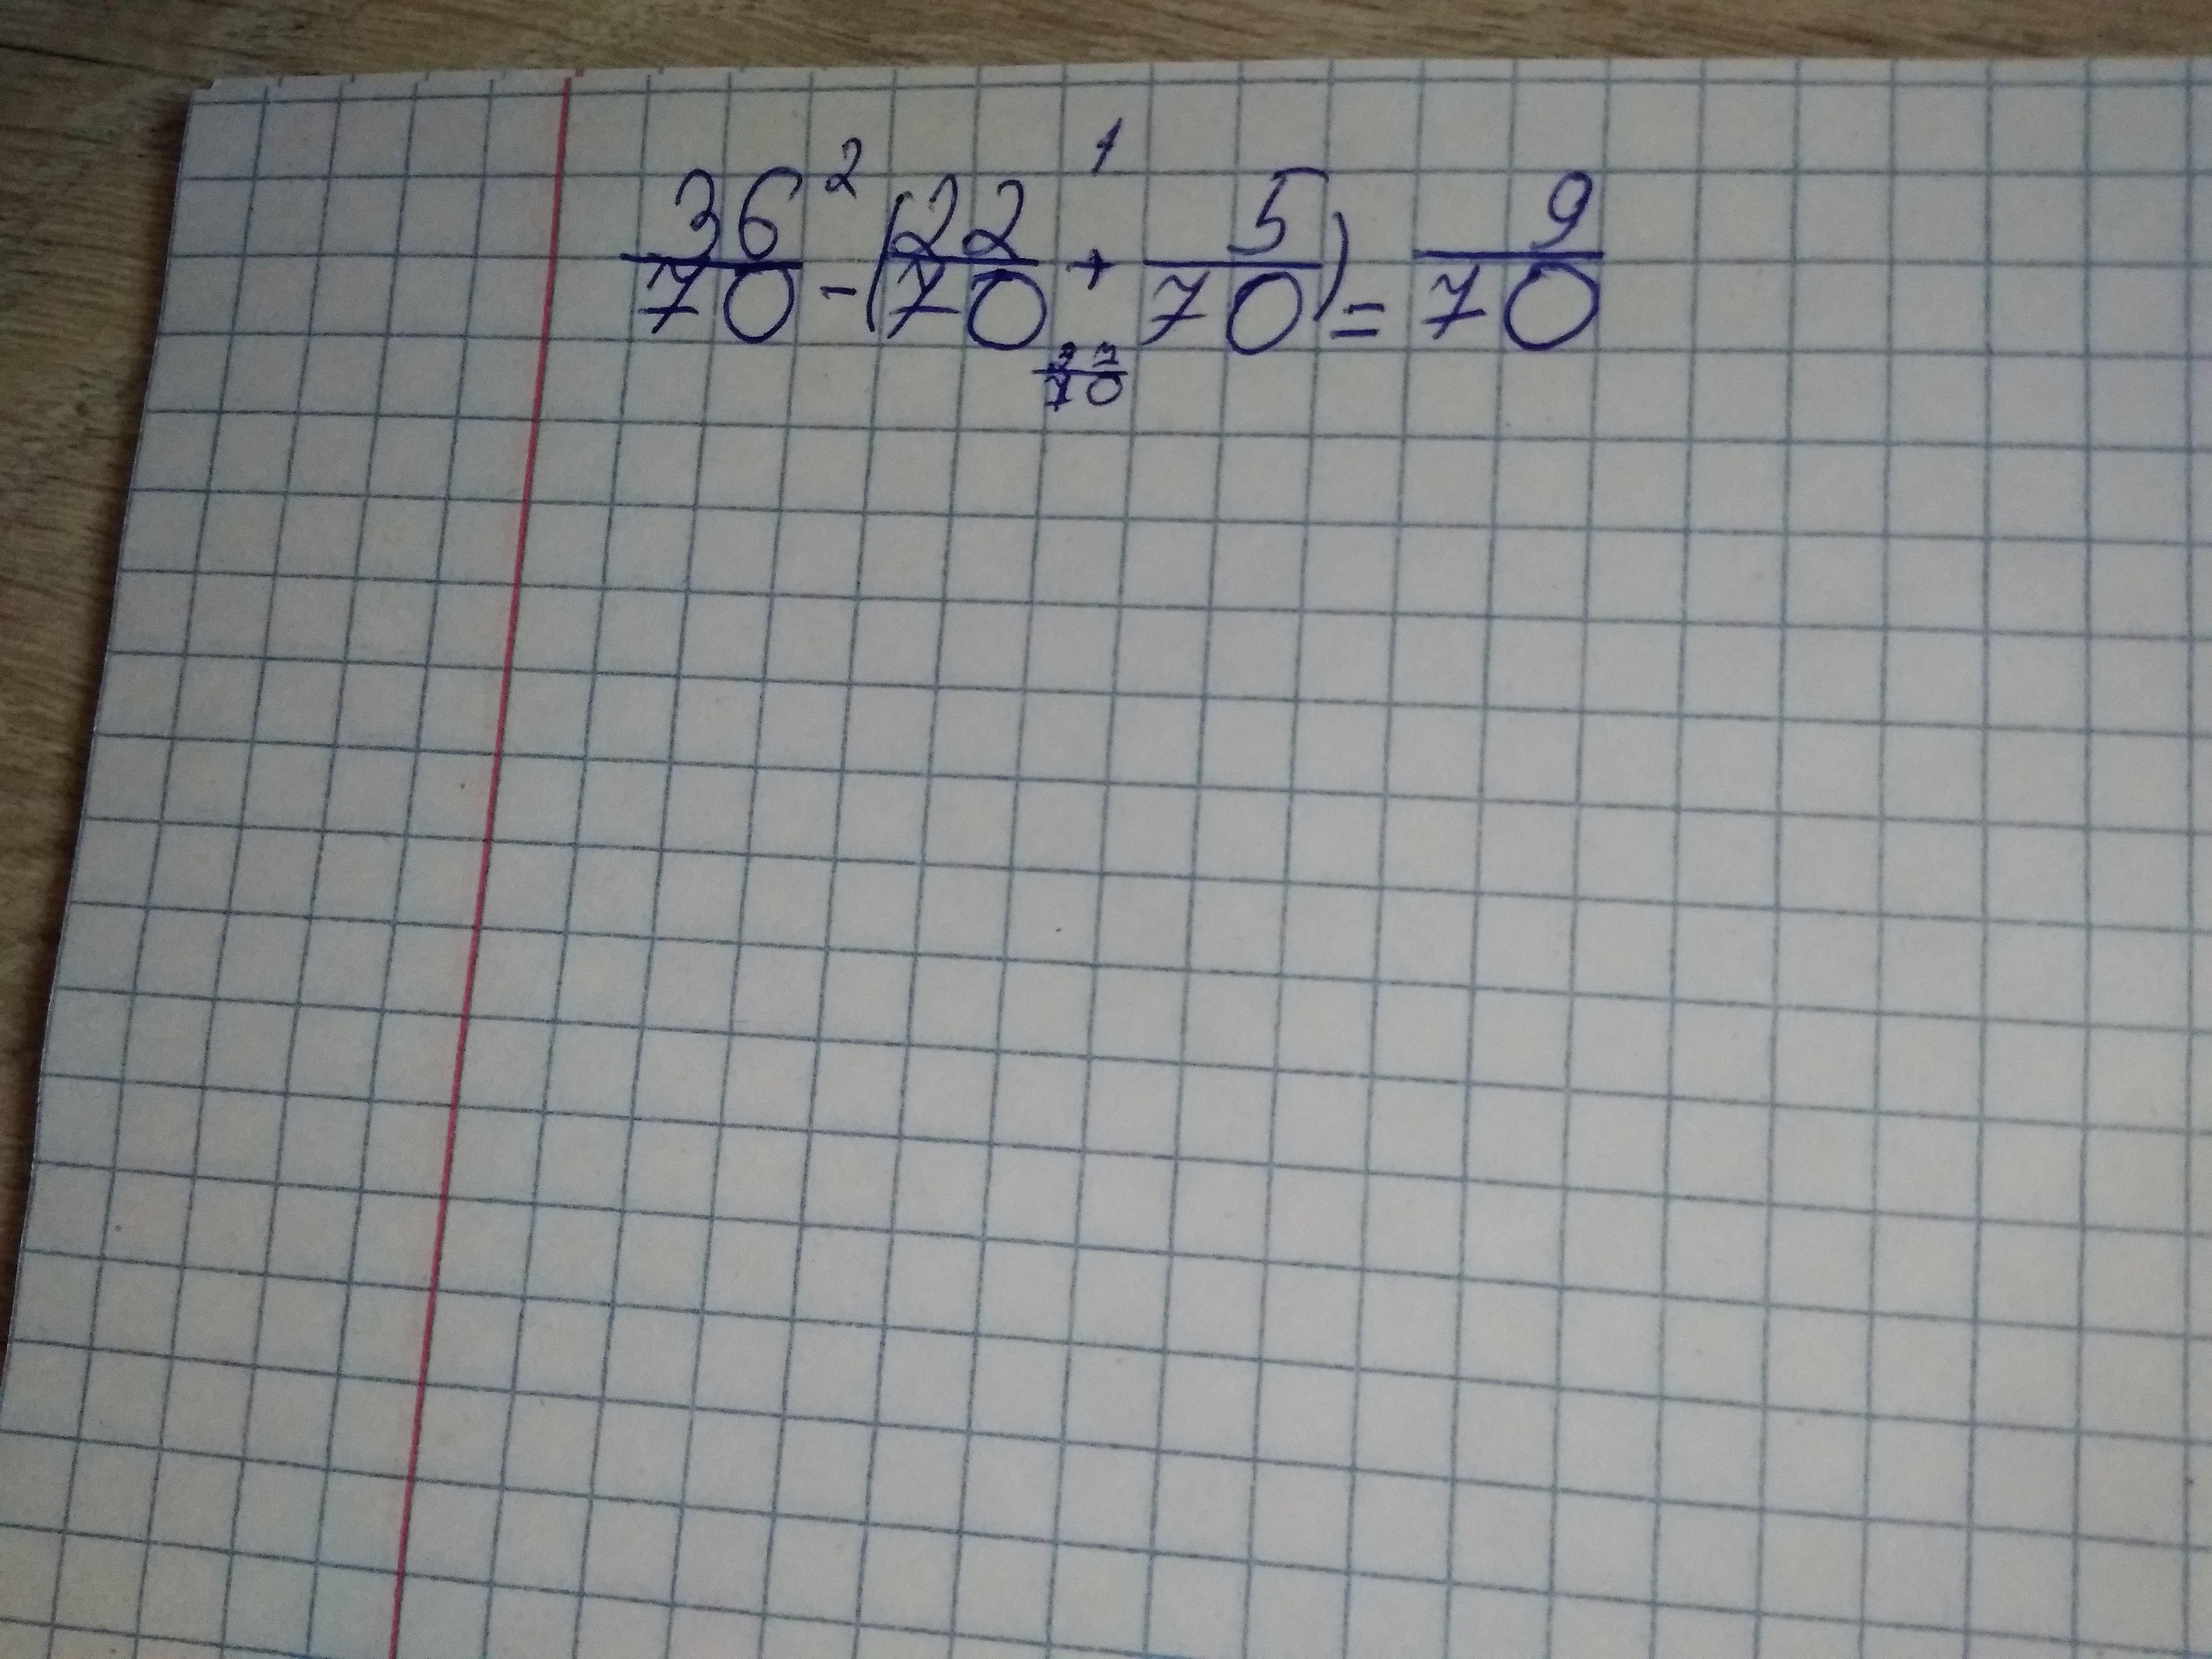 2 1
36/70 - (22/70 + 5/70) = 9/70
27/70